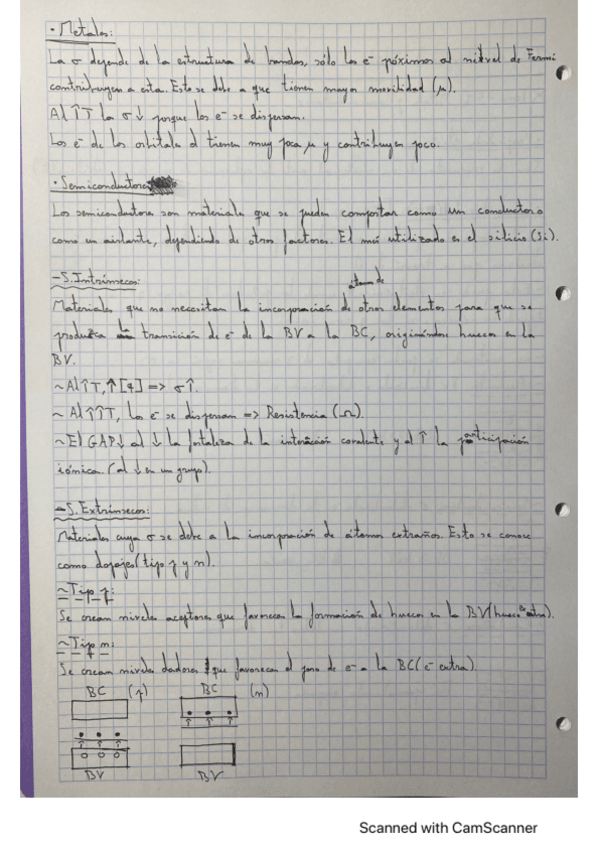 · Metales:
La σ depende de la estructura de bandas, sólo los e⁻ próximos al nivel de Fermi
contribuyen a esta. Esto se debe a que tienen mayor movilidad (μ).
Al ↑T la σ↓ porque los e⁻ se dispersan.
Los e⁻ de los orbitales d tienen muy poca μ y contribuyen poco.
· Semiconductores
Los semiconductores son materiales que se pueden comportar como un conductor o
como un aislante, dependiendo de otros factores. El más utilizado es el silicio (Si).
- S. Intrínsecos:
átomos de
Materiales que no necesitan la incorporación de otros elementos para que se
produzca la transición de e⁻ de la BV a la BC, originándose huecos en la
BV.
~ Al ↑T, ↑[q] => σ↑.
~ Al ↑↑T, los e⁻ se dispersan => Resistencia (Ω).
~ El GAP↓ al ↓ la fortaleza de la interacción covalente y al ↑ la participación
iónica. (al ↓ en un grupo).
- S. Extrínsecos:
Materiales cuya σ se debe a la incorporación de átomos extraños. Esto se conoce
como dopajes (tipo p y n).
~ Tipo p:
Se crean niveles aceptores que favorecen la formación de huecos en la BV (hueco extra).
~ Tipo n:
Se crean niveles dadores que favorecen el paso de e⁻ a la BC (e⁻ extra).
BC (p) BC (n)
BV BV
Scanned with CamScanner